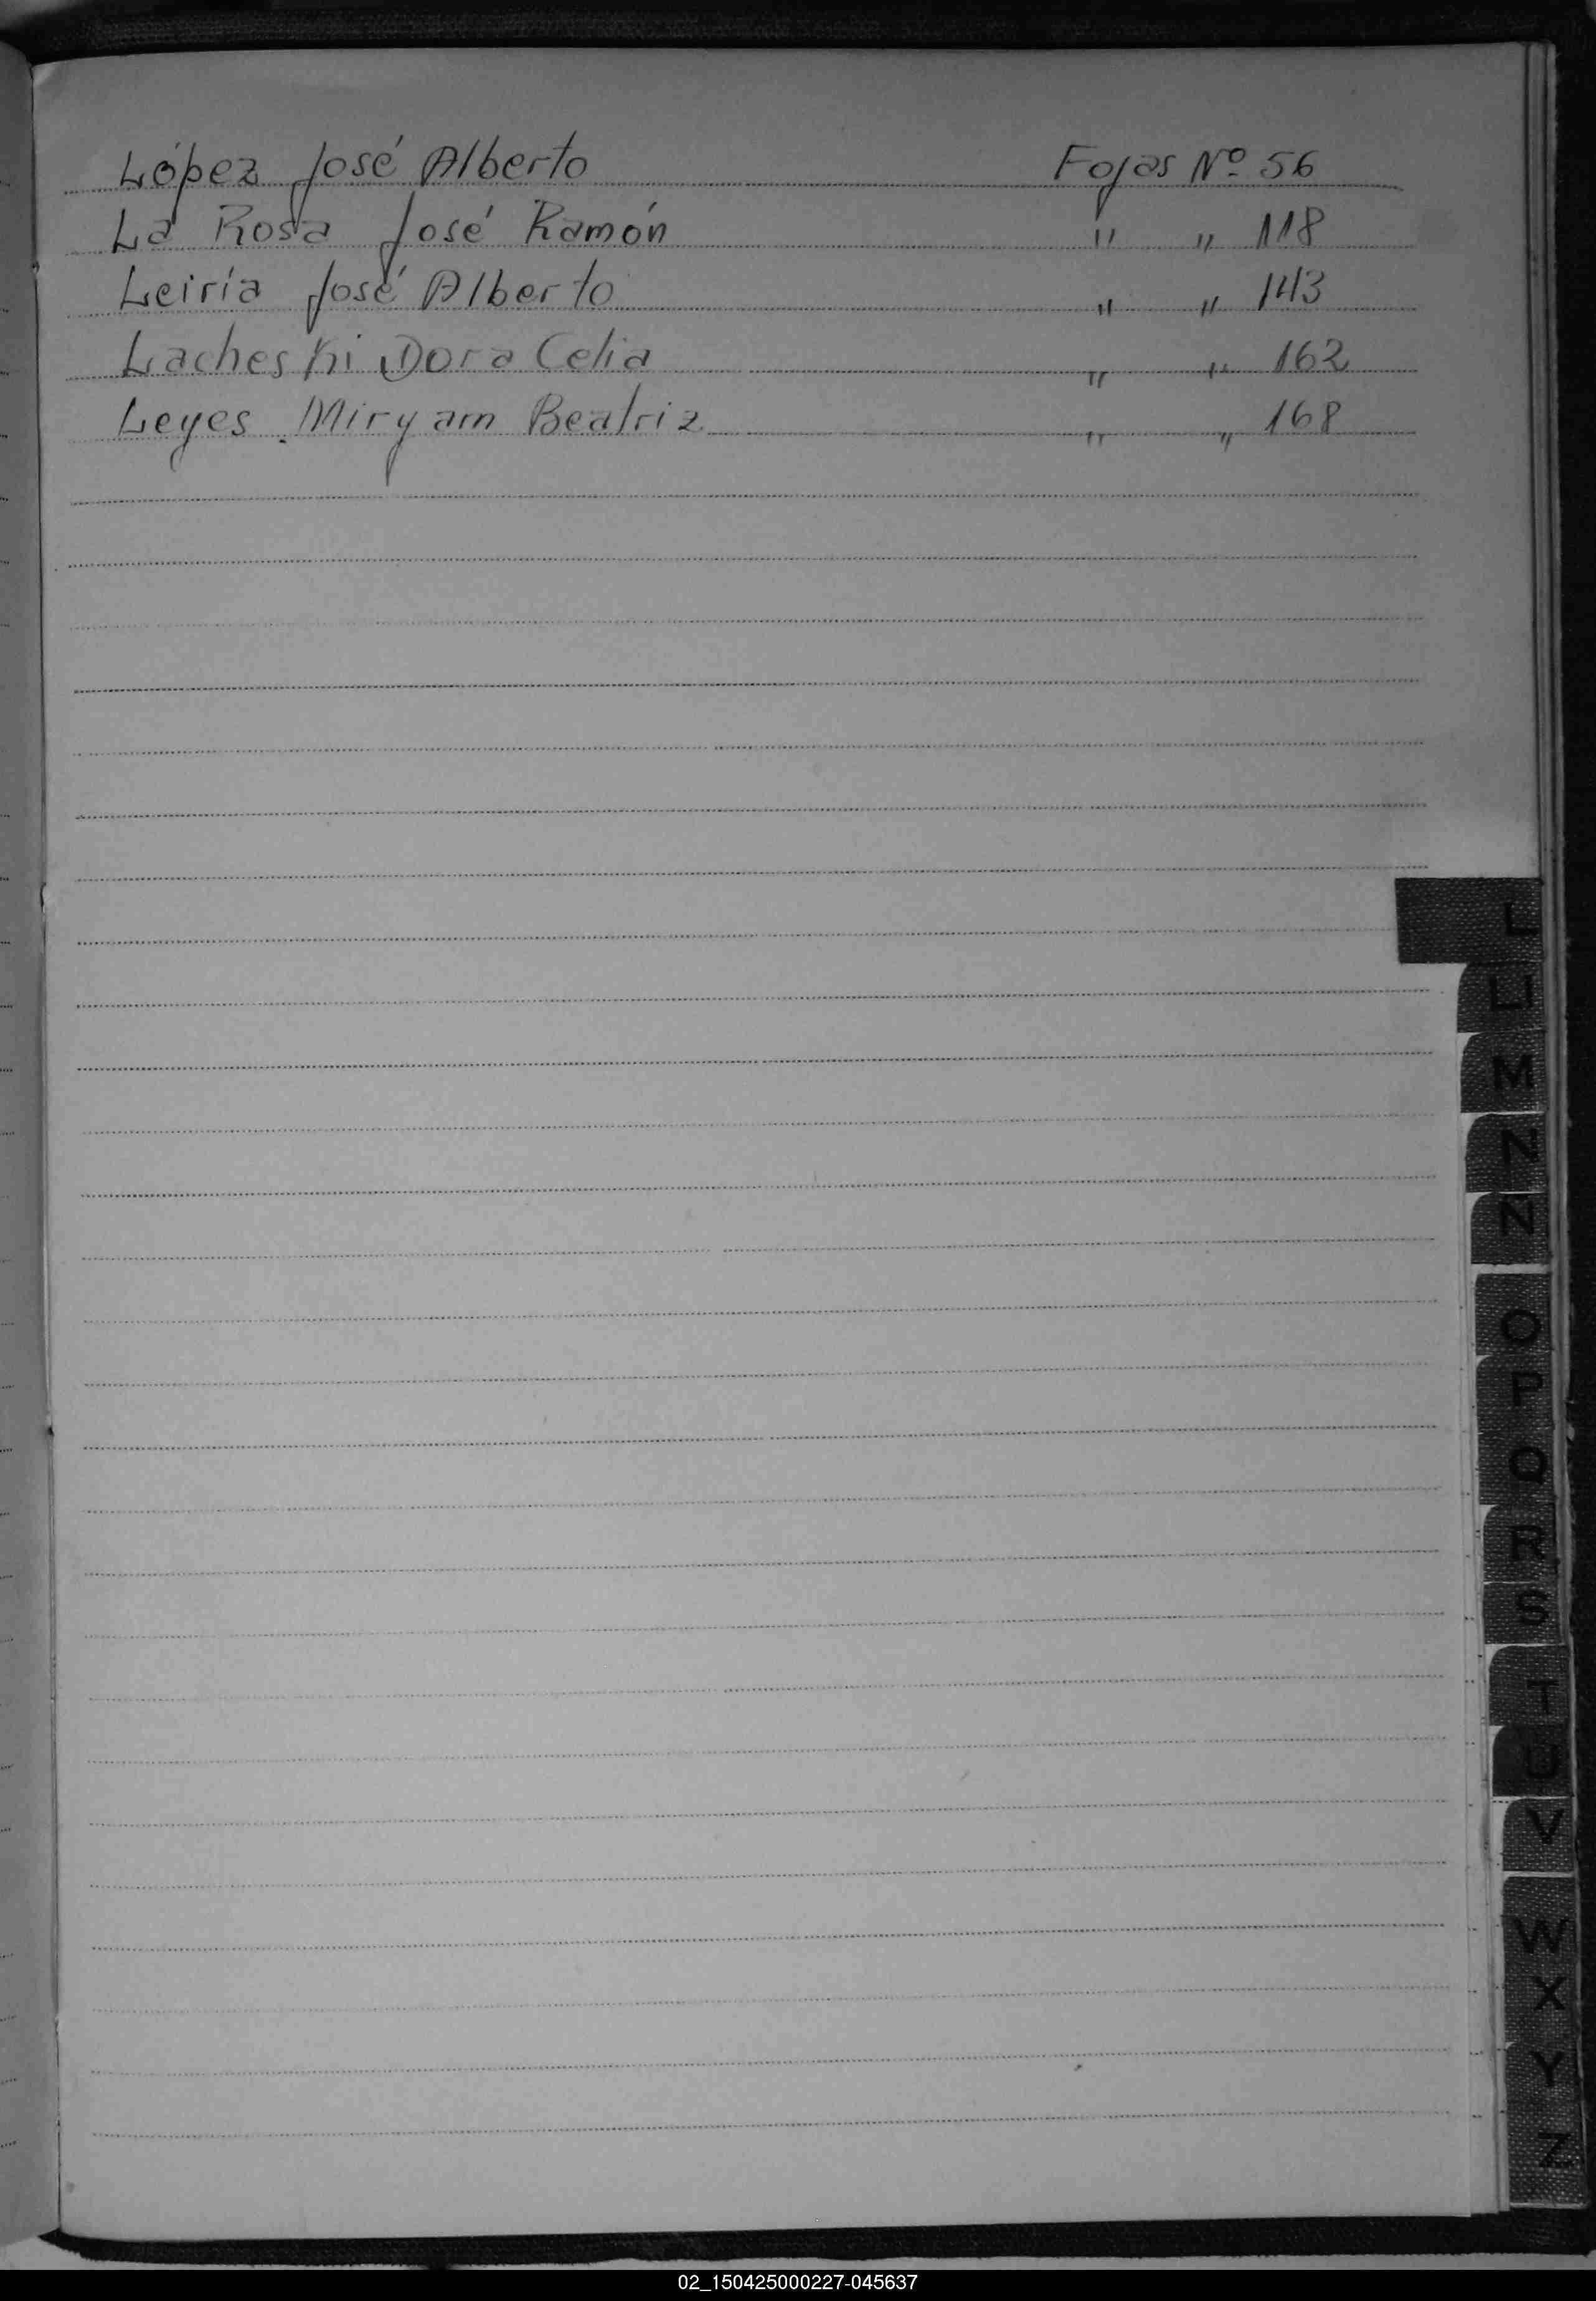 López José Alberto Fojas Nº 56
La Rosa José Ramón " " 118
Leiría José Alberto " " 143
Lacheski Dora Celia " " 162
Leyes Miryam Beatriz " " 168
L
Ll
M
N
Ñ
O
P
Q
R
S
T
U
V
W
X
Y
Z
02_150425000227-045637